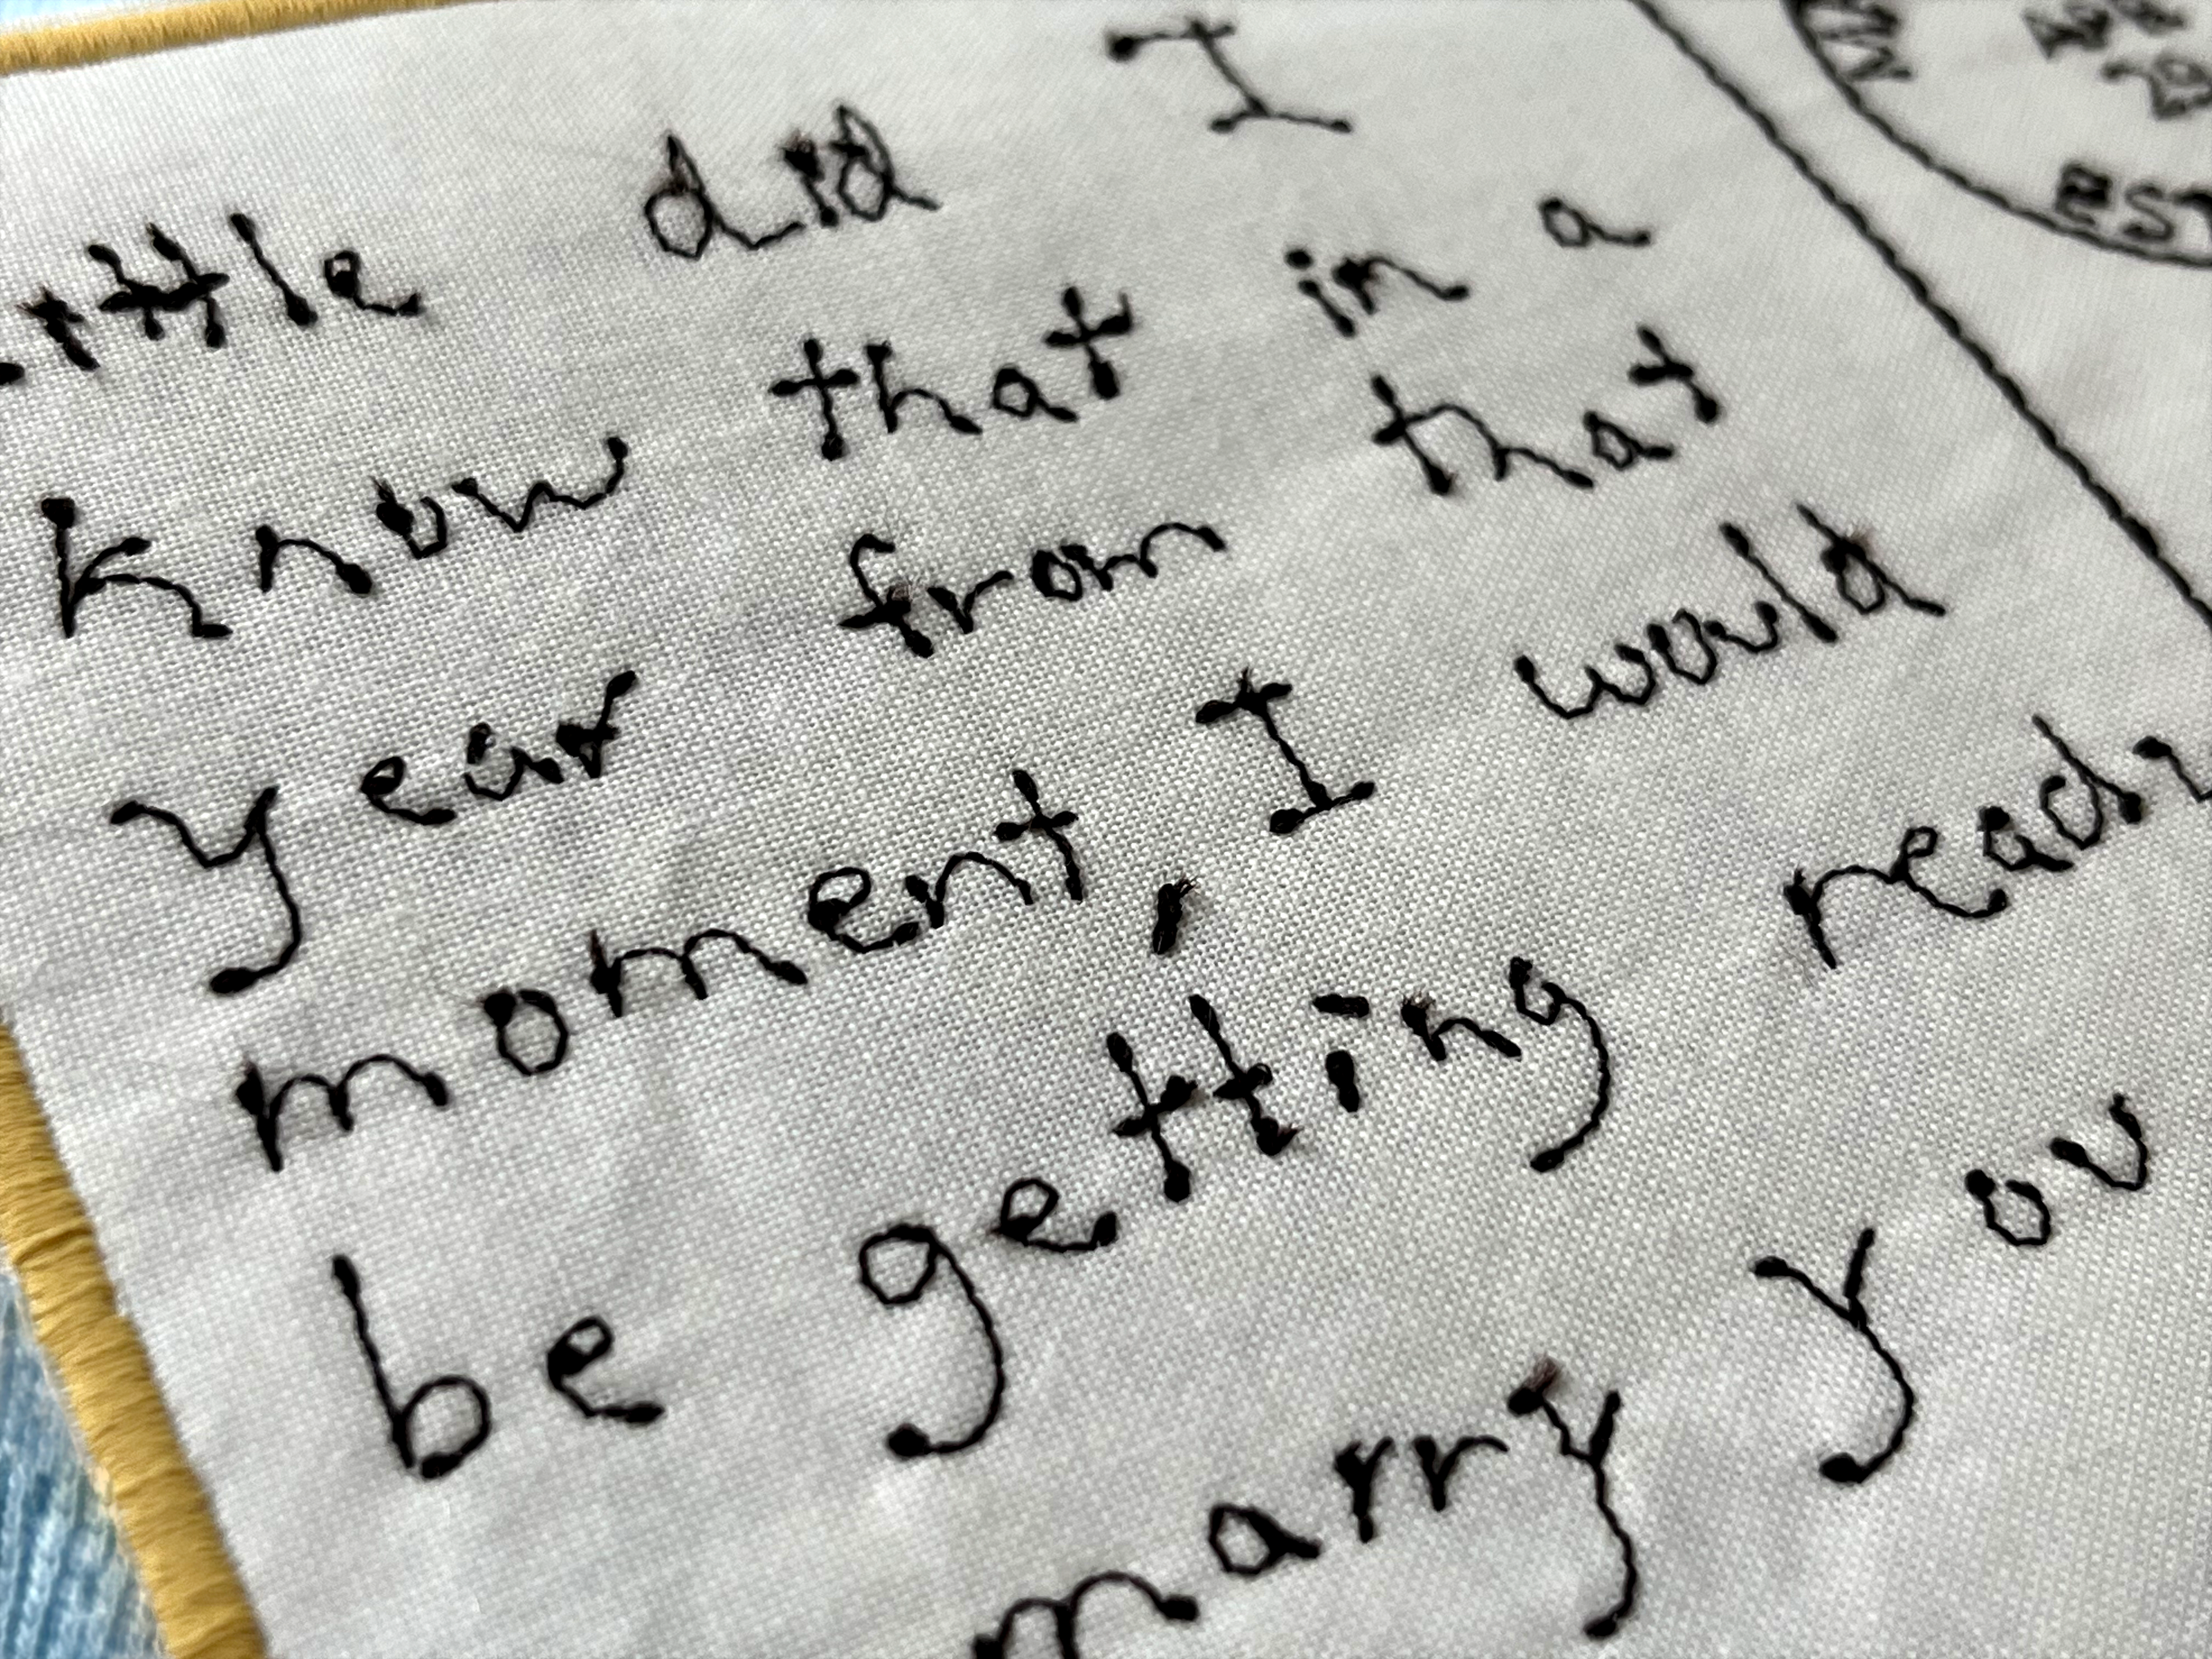 little did I
know that in a
year from that
moment, I would
be getting ready
marry you
EST